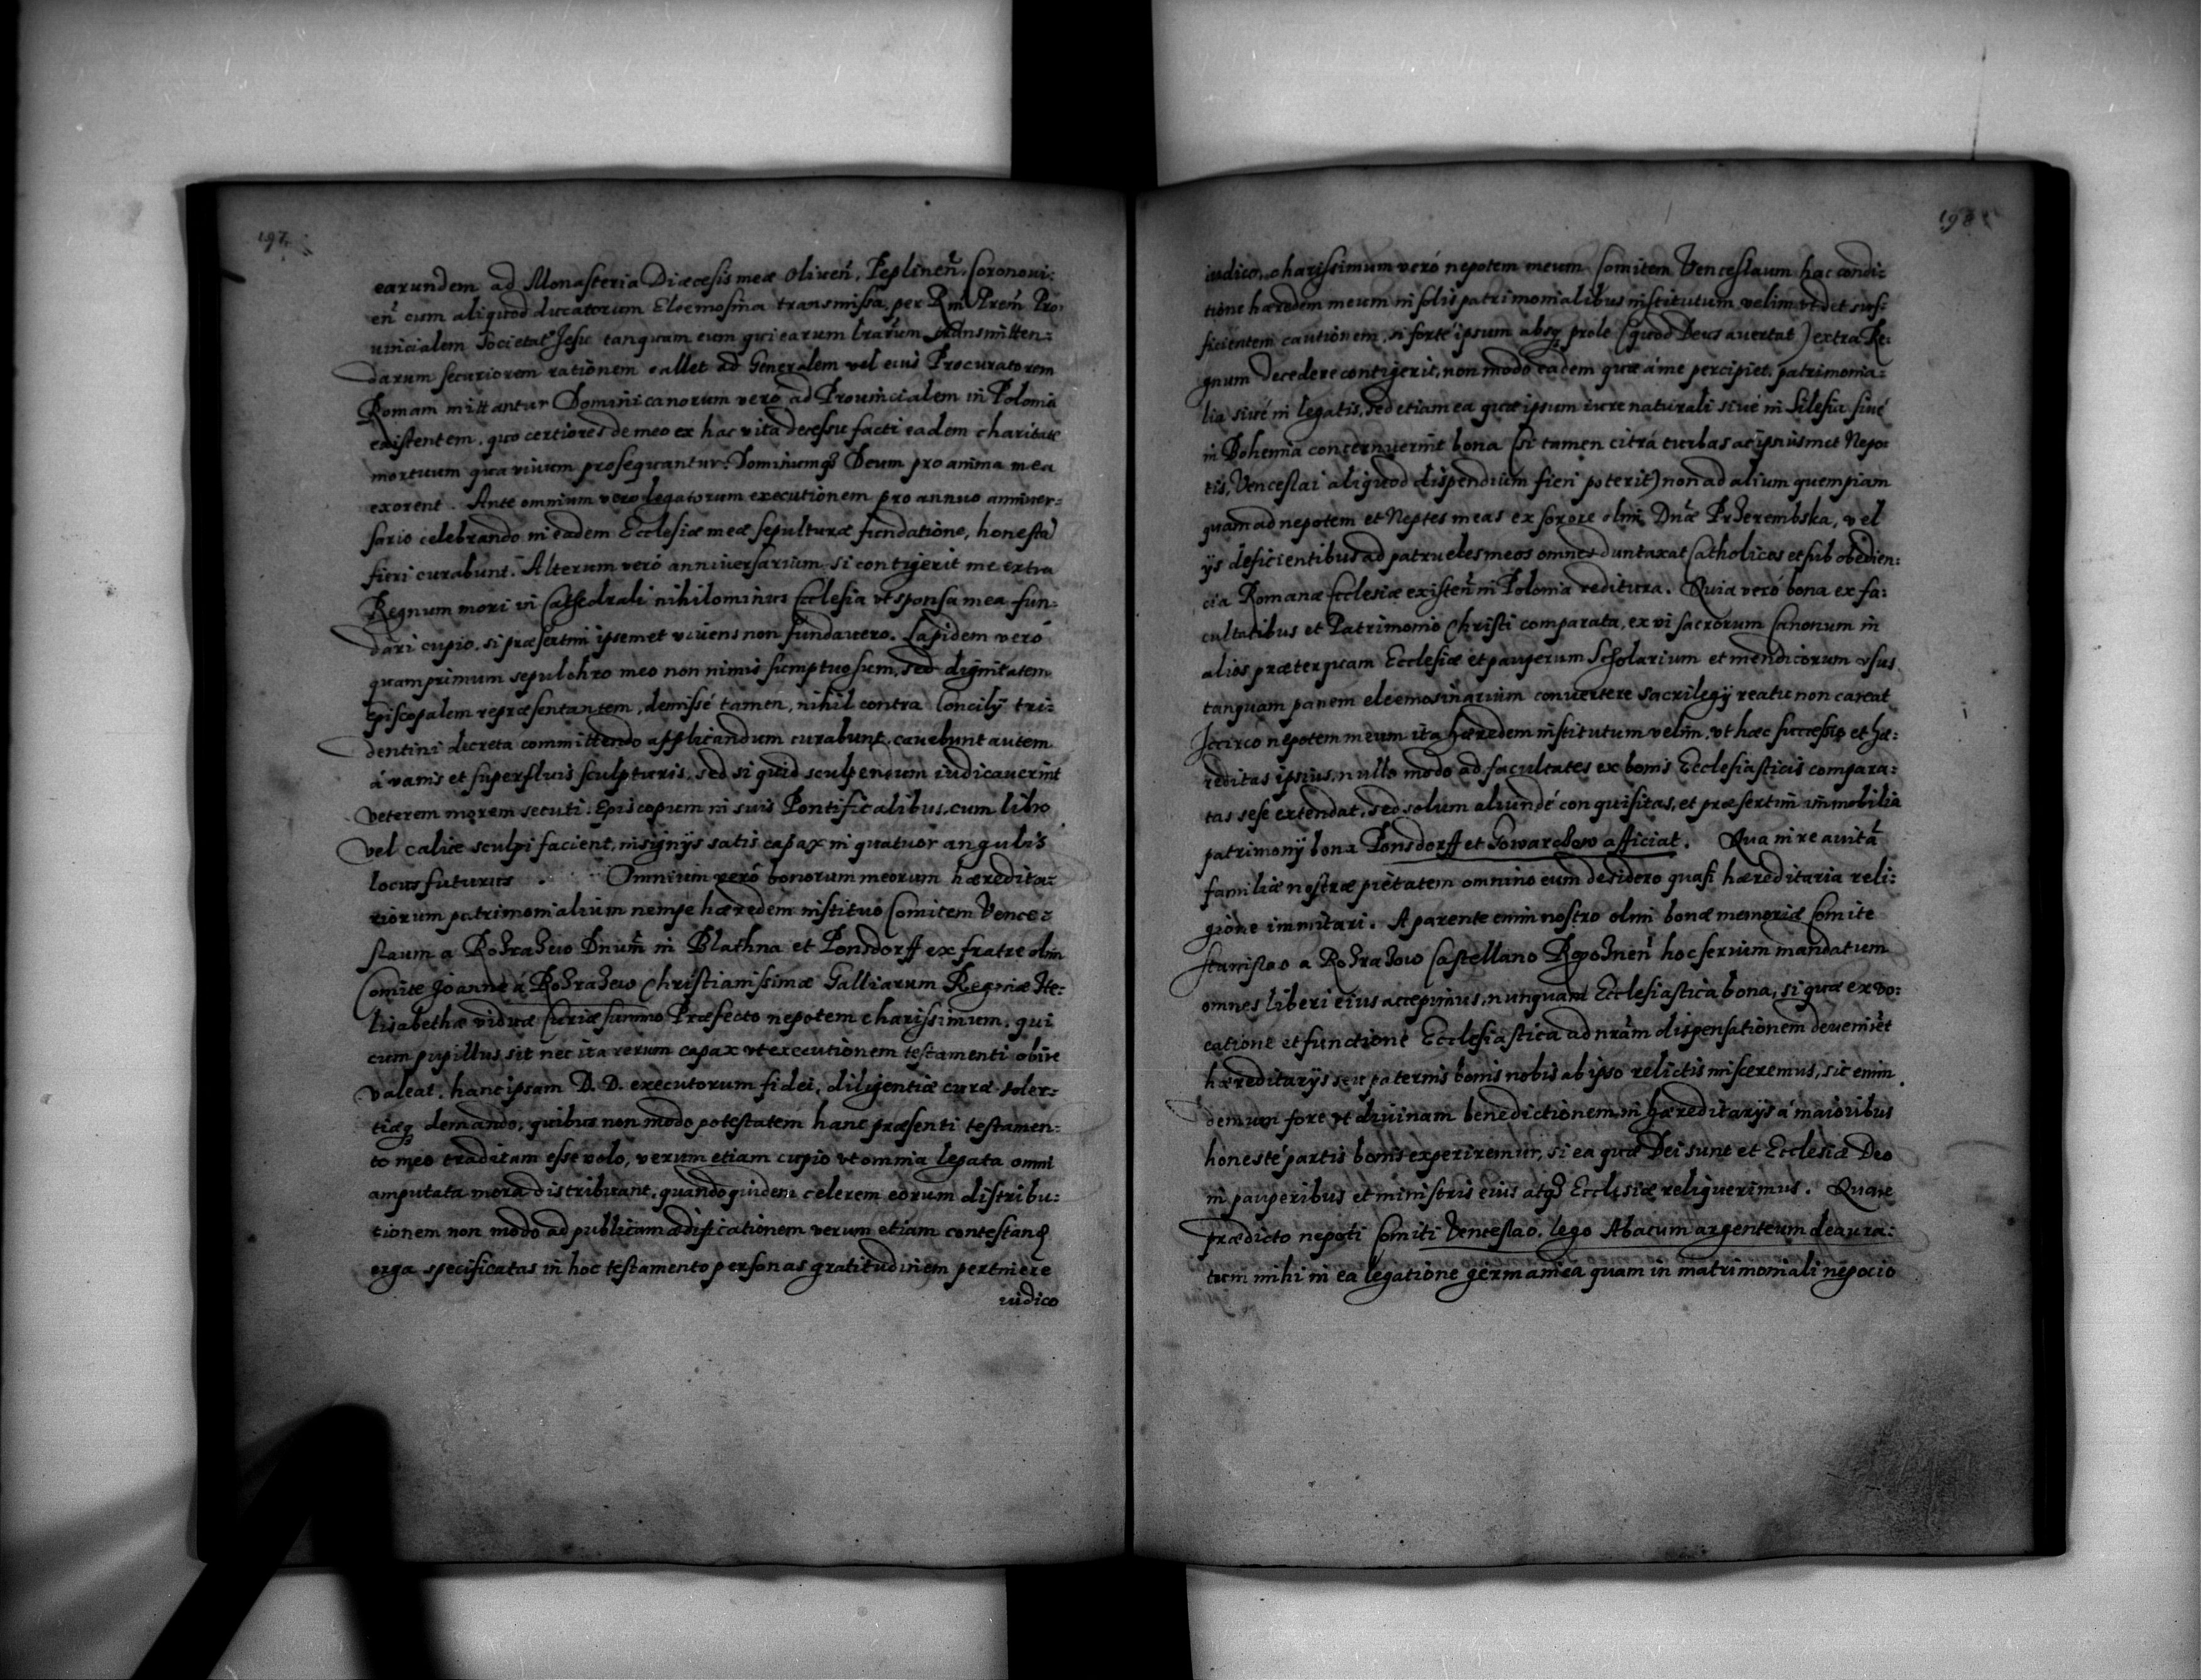 197.
earundem ad Monasteria Diæcesis meæ Oliueñ. Peplineñ. Coronoui:
eñ cum aliquod ducatorum Eleemosina transmissa per Rm̃ Pr̃em Pro
uincialem Societatꝭ Jesu tanquam eum qui earum l̃rarum transmitten:
darum securiorem rationem callet ad Generalem vel eius Procuratorem
Romam mittantur Dominicanorum vero ad Prouincialem in Polonia
existentem. quo certiores de meo ex hac vita decessu facti eadem charitate
mortuum qua viuum prosequantur: Dominumqꝫ Deum pro anima mea
exorent. Ante omnium vero legatorum executionem pro annuo anniuer:
sario celebrando in eadem Ecclesiæ meæ sepulturæ fundatione, honesta
fieri curabunt. Alterum veró anniuersarium, si contigerit me extra
Regnum mori in Cathedrali nihilominus Ecclesia vt sponsa mea fun:
dari cupio, si præsertim ipsemet viuens non fundauero. Lapidem veró
quamprimum sepulchro meo non nimis sumptuosum, sed dignitatem
Episcopalem repræsentantem, demissé tamen, nihil contra Concilÿ tri:
dentini decreta committendo applicandum curabunt. cauebunt autem
á vanis et superfluis sculpturis, sed si quid sculpendum iudicauerint
veterem morem secuti: Episcopum in suis Pontificalibus, cum libro
vel calice sculpi facient, insignÿs satis capax in quatuor angulis
locus futurus. Omnium veró bonorum meorum hæredita:
riorum patrimonialium nempe hæredem instituo Comitem Vence:
slaum a Rozrazewo Dnum̃ in Blathna et Ponsdorff ex fratre olim
Comite Joanne á Rozrazewo Christianissimæ Galliarum Reginæ He:
lisabethæ viduæ Curiæ summo Præfecto nepotem charissimum. qui
cum pupillus sit nec ita rerum capax vt executionem testamenti obire
valeat. hanc ipsam D. D. executorum fidei, diligentiæ curæ soler:
tiæqꝫ demando, quibus non modo potestatem hanc præsenti testamen:
to meo traditam esse volo, verum etiam cupio vt omnia legata omni
amputata mora distribuant, quandoquidem celerem eorum distribu:
tionem non modo ad publicam ædificationem verum etiam contestandꝫ
erga specificatas in hoc testamento personas gratitudinem pertinere
iudico
198
iudico. charissimum veró nepotem meum Comitem Venceslaum hac condi:
tione hæredem meum in solis patrimonialibus institutum velim, vt det suf:
ficientem cautionem, si forté ipsum absqꝫ prole (quod Deus auertat) extra Re:
gnum decedere contigerit, non modo eadem quæ á me percipiet patrimonia:
lia siué in legatis, sed etiam ea quæ ipsum iure naturali siué in Silesia siué
in Bohemia concernuerint bona (si tamen citrá turbas ac ipsiusmet Nepo:
tis, Venceslai aliquod dispendium fieri poterit) non ad alium quempiam
quam ad nepotem et Neptes meas ex sorore olim Dnæ Przerembska, vel
ÿs deficientibus ad patrueles meos omnes duntaxat Catholicos et sub obedien:
cia Romanæ Ecclesiæ existeñ in Polonia reditura. Quia veró bona ex fa:
cultatibus et Patrimonio Christi comparata, ex vi sacrorum Canonum in
alios præterquam Ecclesiæ et pauperum Scholarium et mendicorum vsus
tanquam panem eleemosinarium conuertere sacrilegÿ reatu non careat
Iccirco nepotem meum ita hæredem institutum velim, vt hæc successio et hæ:
reditas ipsius, nullo modo ad facultates ex bonis Ecclesiasticis compara:
tas sese extendat, sed solum aliundé conquisitas, et præsertim immobilia
patrimonÿ bona Ponsdorff et Gowarzow afficiat. Qua in re auitã
familiæ nostræ pietatem omnino eum desidero quasi hæreditaria reli:
gione immitari. A parente enim nostro olim bonæ memoriæ Comite
Stanislao a Rozrazewo Castellano Rogozneñ hoc serium mandatum
omnes liberi eius accepimus, nunquam Ecclesiastica bona, si quæ ex vo:
catione et functione Ecclesiastica ad nr̃am dispensationem deuenirẽt
hæreditarÿs seu paternis bonis nobis ab ipso relictis misceremus, sic enim
demum fore vt diuinam benedictionem in hæreditarÿs á maioribus
honesté partis bonis experiremur, si ea quæ Dei sunt et Ecclesiæ Deo
in pauperibus et ministris eius atqꝫ Ecclesiæ reliquerimus. Quare
prædicto nepoti Comiti Venceslao, lego Abacum argenteum deaura:
tum mihi in ea legatione germanica quam in matrimoniali negocio